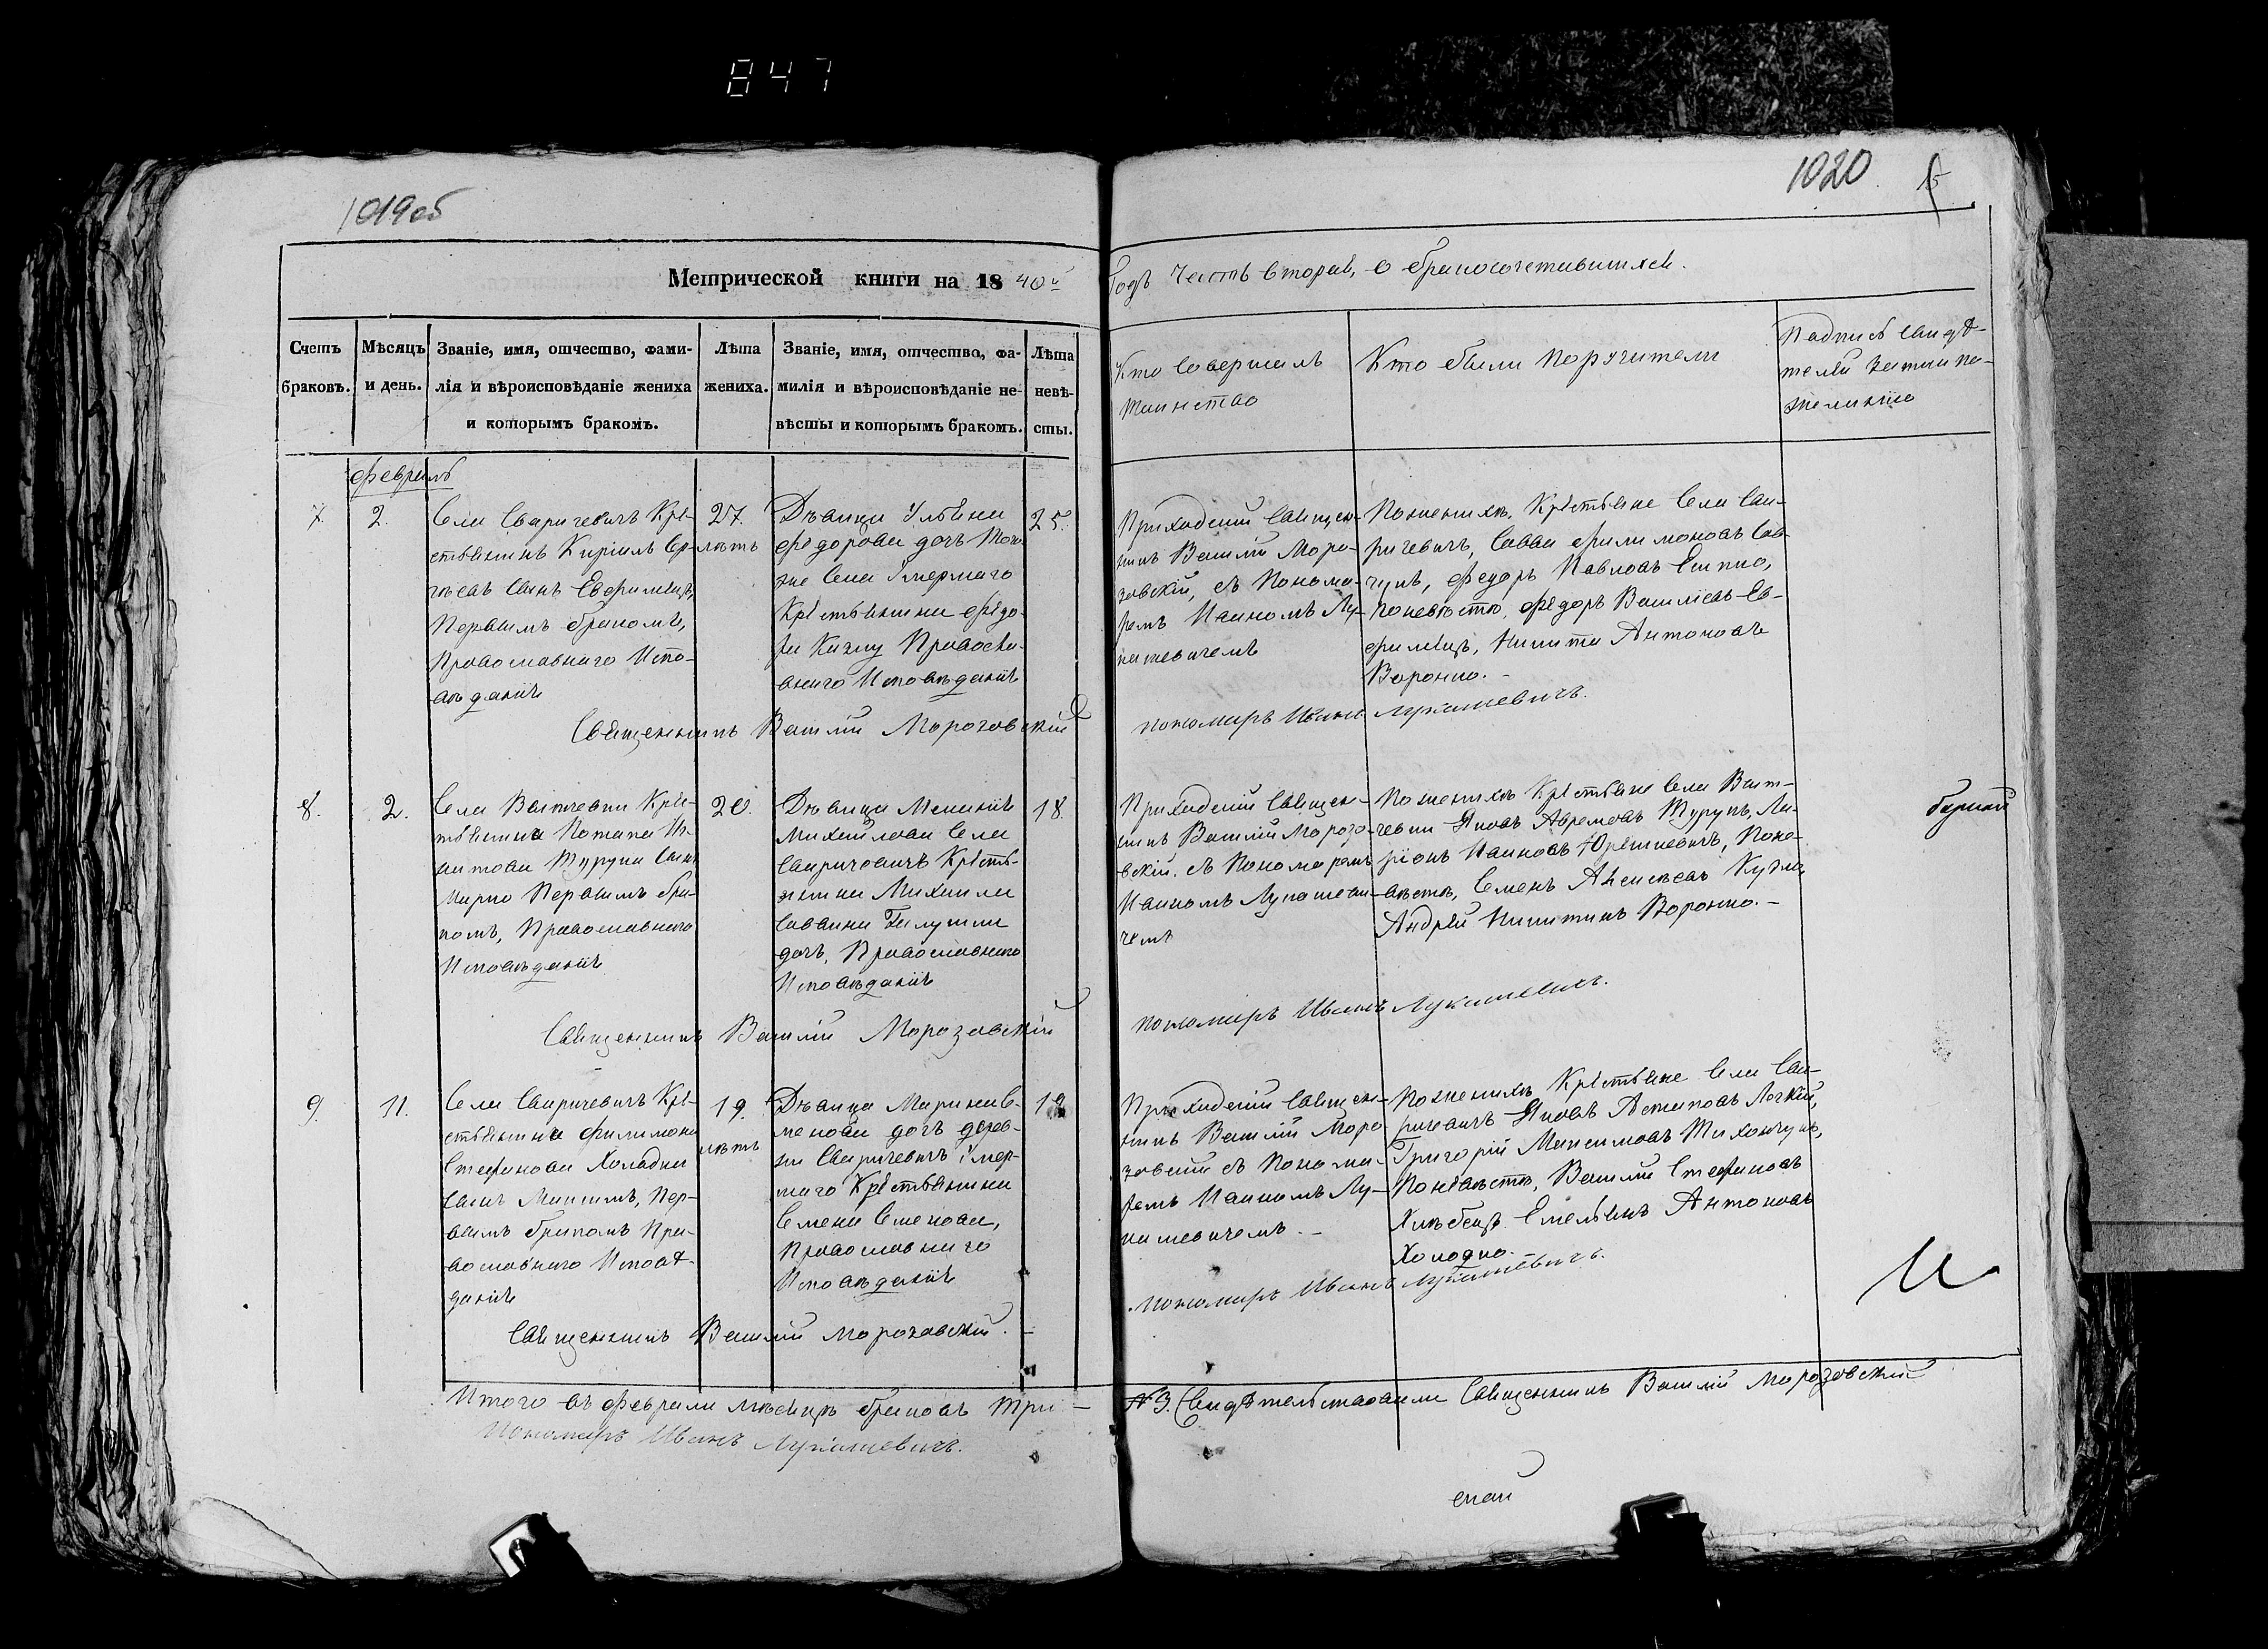 847
1019об
1020
Метрической книги на 1840й
Годъ Часть вторая, о бракосочетавшихся.
Счетъ браковъ.
Мѣсяцъ и день.
Званіе, имя, отчество, фами-
лія и вѣроисповѣданіе жениха
и которымъ бракомъ.
Лѣта
жениха.
Званіе, имя, отчество, фа-
милія и вѣроисповѣданіе не-
вѣсты и которымъ бракомъ.
Лѣта
невѣ-
сты.
Кто совершалъ
таинство
Кто были поручители
Подпись свидѣ-
телей
Февраль
7.
2.
Села Сваричевичъ Кре-
стьянинъ Кирилъ
сынъ Ефимецъ,
Первымъ бракомъ,
Православнаго Испо-
вѣданія
27.
лѣтъ
Дѣвица Ульяна
Федорова дочь
же села умершаго
Крестьянина Федо-
ра Кузму Правосла-
внаго Исповѣданія
25.
Приходскій Священ-
никъ Василій Моро-
зовскій, съ Понома-
ремъ Иваномъ Лу-
кашевичемъ
По женихѣ, Крестьяне села Сва-
ричевичъ, Савва Филимоновъ
Федоръ Павловъ
По невѣстѣ, Федоръ Василіевъ Еф-
имецъ, Никита Антоновъ
Воронко.-
Священникъ Василій Морозовскій
пономарь Иванъ Лукашевичъ.
8.
2.
Села Ватичевки Крес-
тьянина Потапа Иг-
натова Турука сынъ
Марко Первымъ бра-
комъ, Православнаго
Исповѣданія
20.
Дѣвица Меланія
Михайлова села
Сваричовичъ Кресть-
янина Михаила
Саввина
дочь, Православнаго
Исповѣданія
18.
Приходскій Священ-
никъ Василій Морозо-
вскій, съ Пономаремъ
Иваномъ Лукашеви-
чемъ
По женихѣ Крестьяне села Вати-
чевки Яковъ Аврамовъ Турукъ, Ла-
ріонъ Ивановъ Юрашкевичъ, По не-
вѣстѣ, Семенъ Алексѣевъ Кузма
Андрей Никитинъ Воронко.-
Священникъ Василій Морозовскій
пономарь Иванъ Лукашевичъ.
9.
11.
Села Сваричевичъ Кре-
стьянина Филимона
Стефанова Холодка
сынъ Максимъ, Пер-
вымъ бракомъ Пра-
вославнаго Исповѣ-
данія
19.
лѣтъ
Дѣвица Марина Се-
менова дочь дерев-
ни Сваричевичъ Умер-
шаго Крестьянина
Семена Семенова,
Православнаго
Исповѣданія
Приходскій Священ-
никъ Василій Моро-
зовскій съ Понома-
ремъ Иваномъ Лу-
кашевичемъ.-
По женихѣ Крестьяне села Сва-
ричевичъ Яковъ
Григорій Максимовъ Тихончукъ,
По невѣстѣ, Василій Стефановъ
Хлѣбецъ. Емельянъ Антоновъ
Холодко.-
Священникъ Василій Морозовскій.-
пономарь Иванъ Лукашевичъ.
Итого въ Февралѣ мѣсяцѣ браковъ три -
№3. Свидѣтельствовалъ Священникъ Василій Морозовскій
Пономарь Иванъ Лукашевичъ.